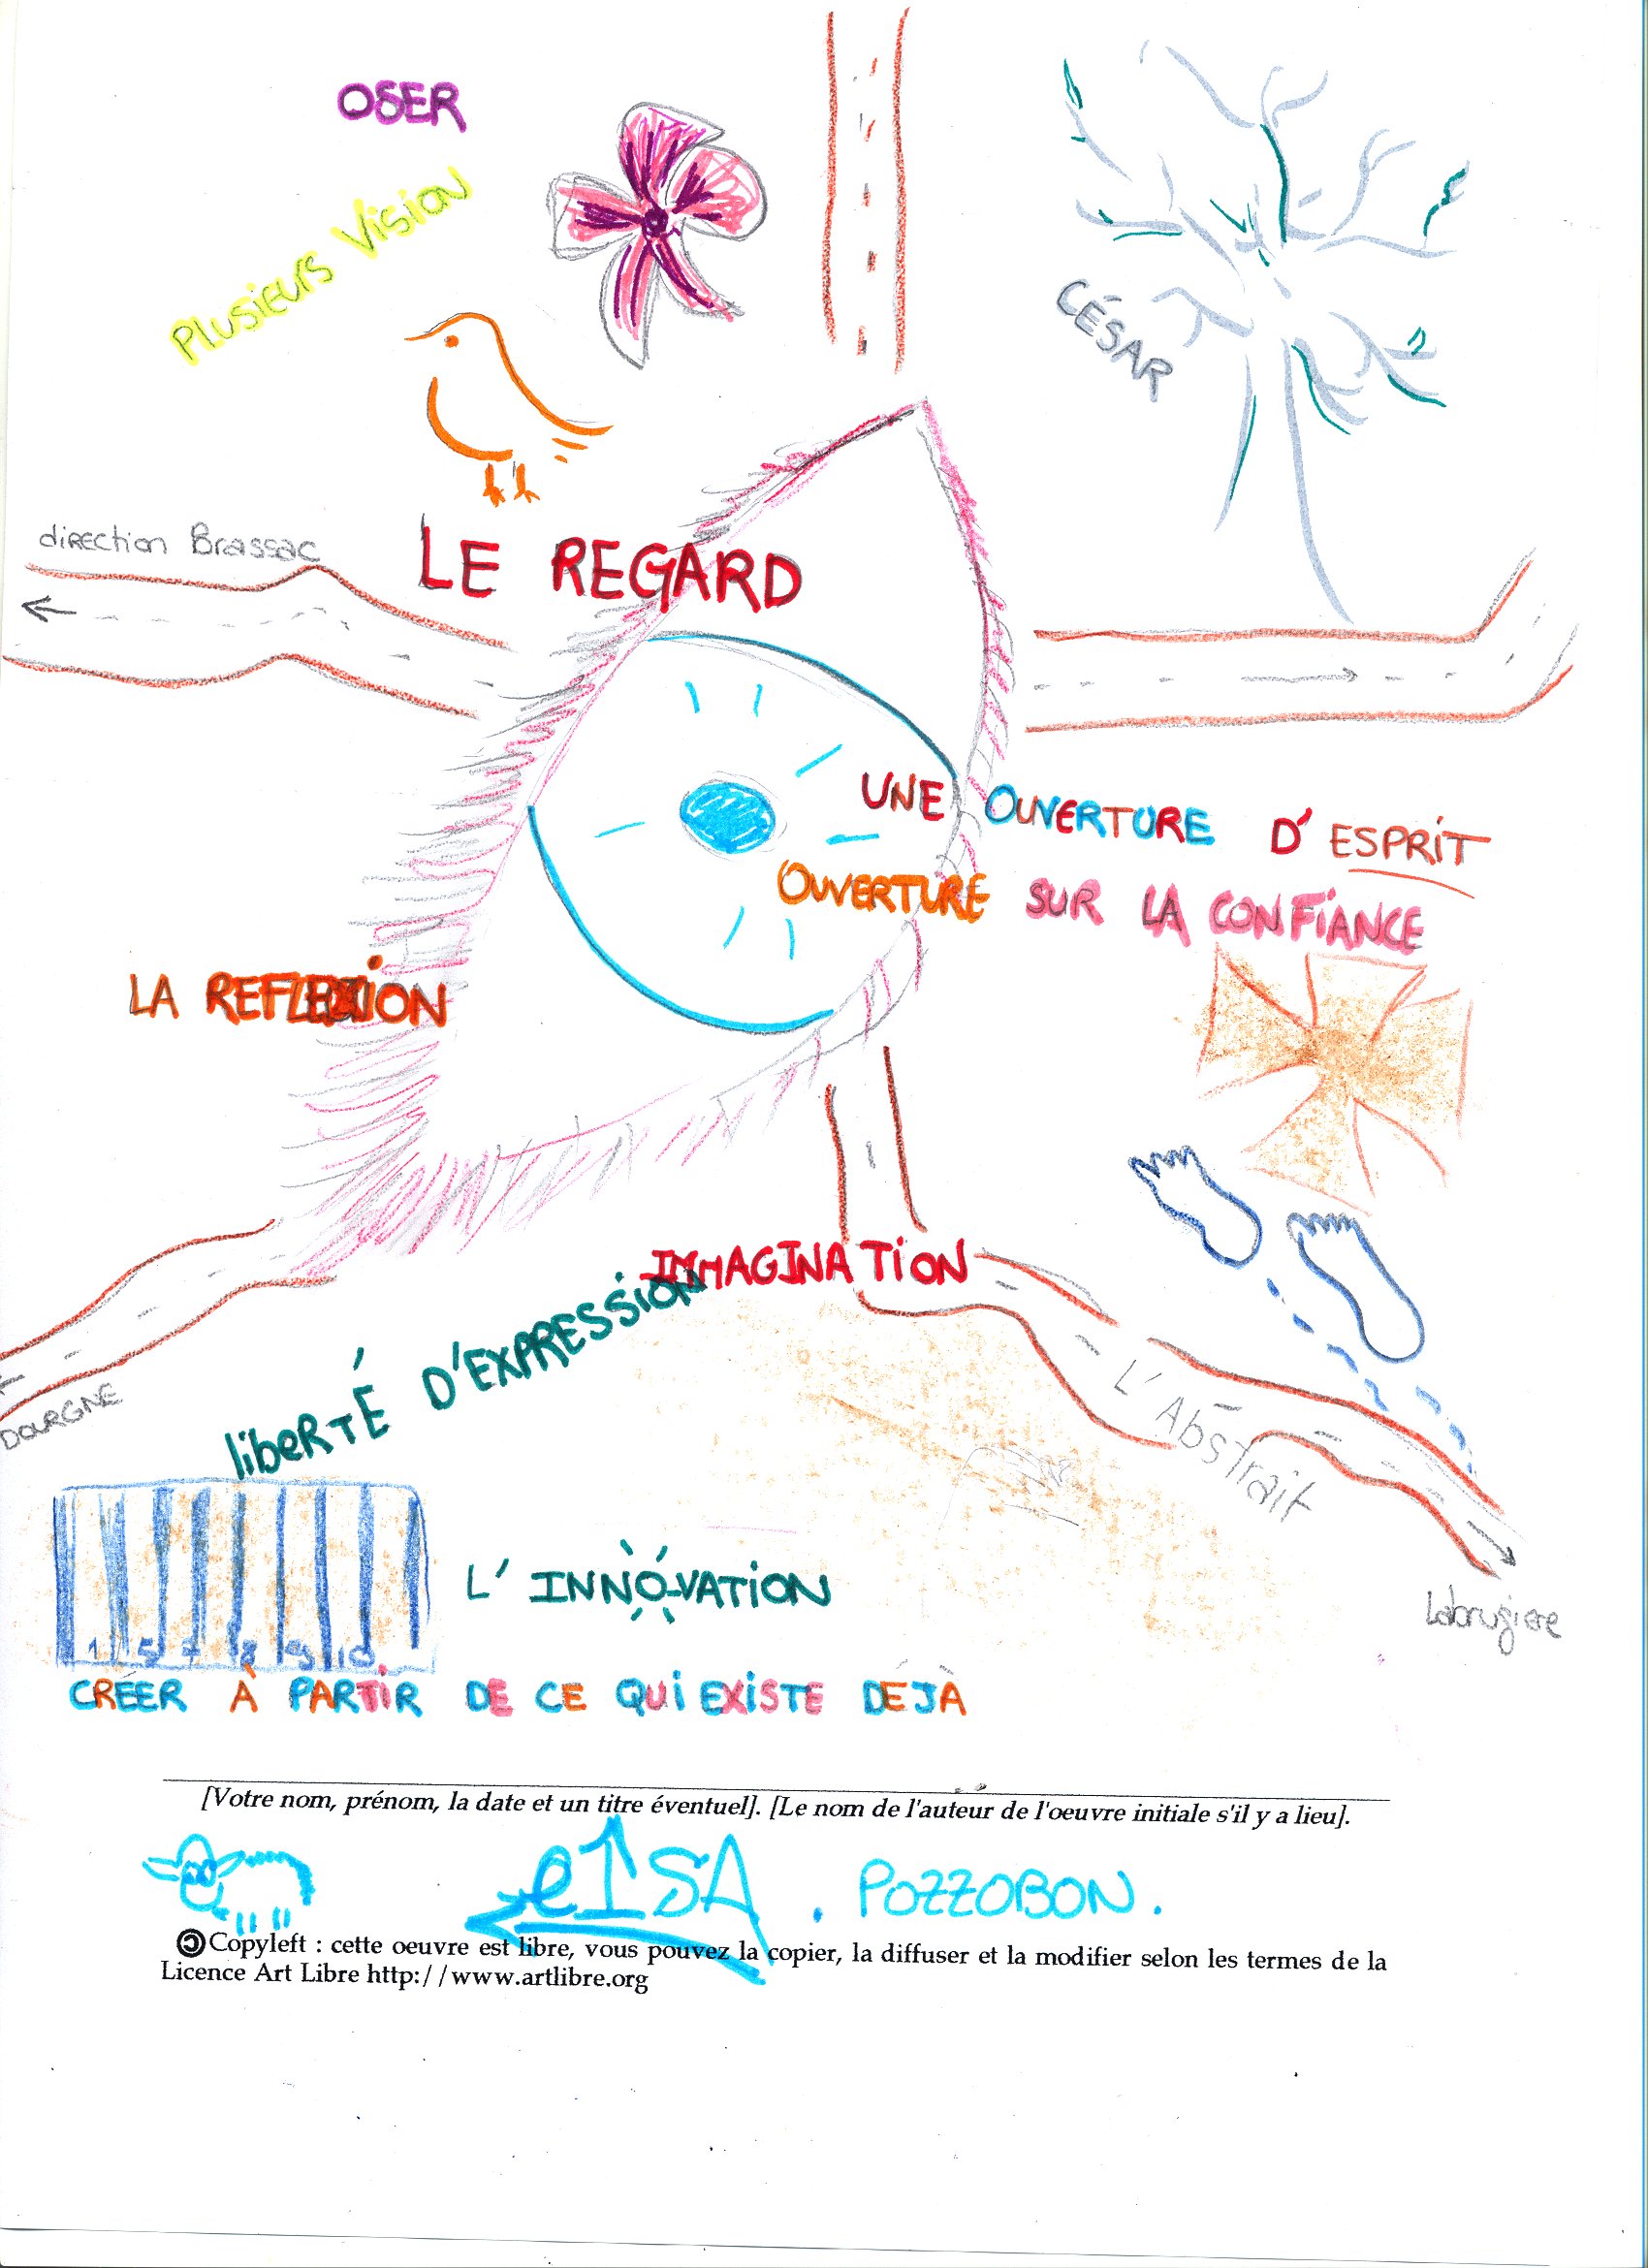 OSER
PLUSIEURS VISION
CÉSAR
direction Brassac
LE REGARD
UNE OUVERTURE D'ESPRIT
OUVERTURE SUR LA CONFIANCE
LA REFLEXION
IMMAGINATION
liberTÉ D'EXPRESSION
DOURGNE
L'Abstrait
L'INNOVATION
Labrugiere
1 5 7 8 9 10
CRÉER À PARTIR DE CE QUI EXISTE DÉJÀ
[Votre nom, prénom, la date et un titre éventuel]. [Le nom de l'auteur de l'oeuvre initiale s'il y a lieu].
elSA . POZZOBON.
Copyleft : cette oeuvre est libre, vous pouvez la copier, la diffuser et la modifier selon les termes de la
Licence Art Libre http://www.artlibre.org